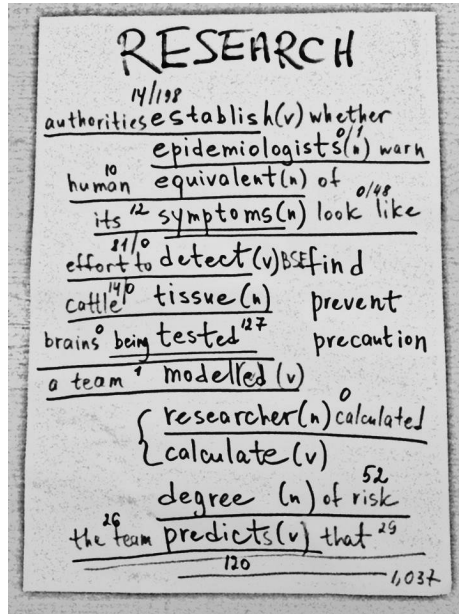 RESEARCH
14/198
authorities establish(v) whether
0/1
epidemiologists(n) warn
10
human equivalent(n) of
0/48
its 12 symptoms(n) look like
81/0
effort to detect(v) BSE find
14/0
cattle tissue(n) prevent
brains 0 being tested 127 precaution
a team 1 modelled (v)
0
researcher(n) calculated
calculate (v)
52
degree (n) of risk
26
the team predicts(v) that 29
120
1,037